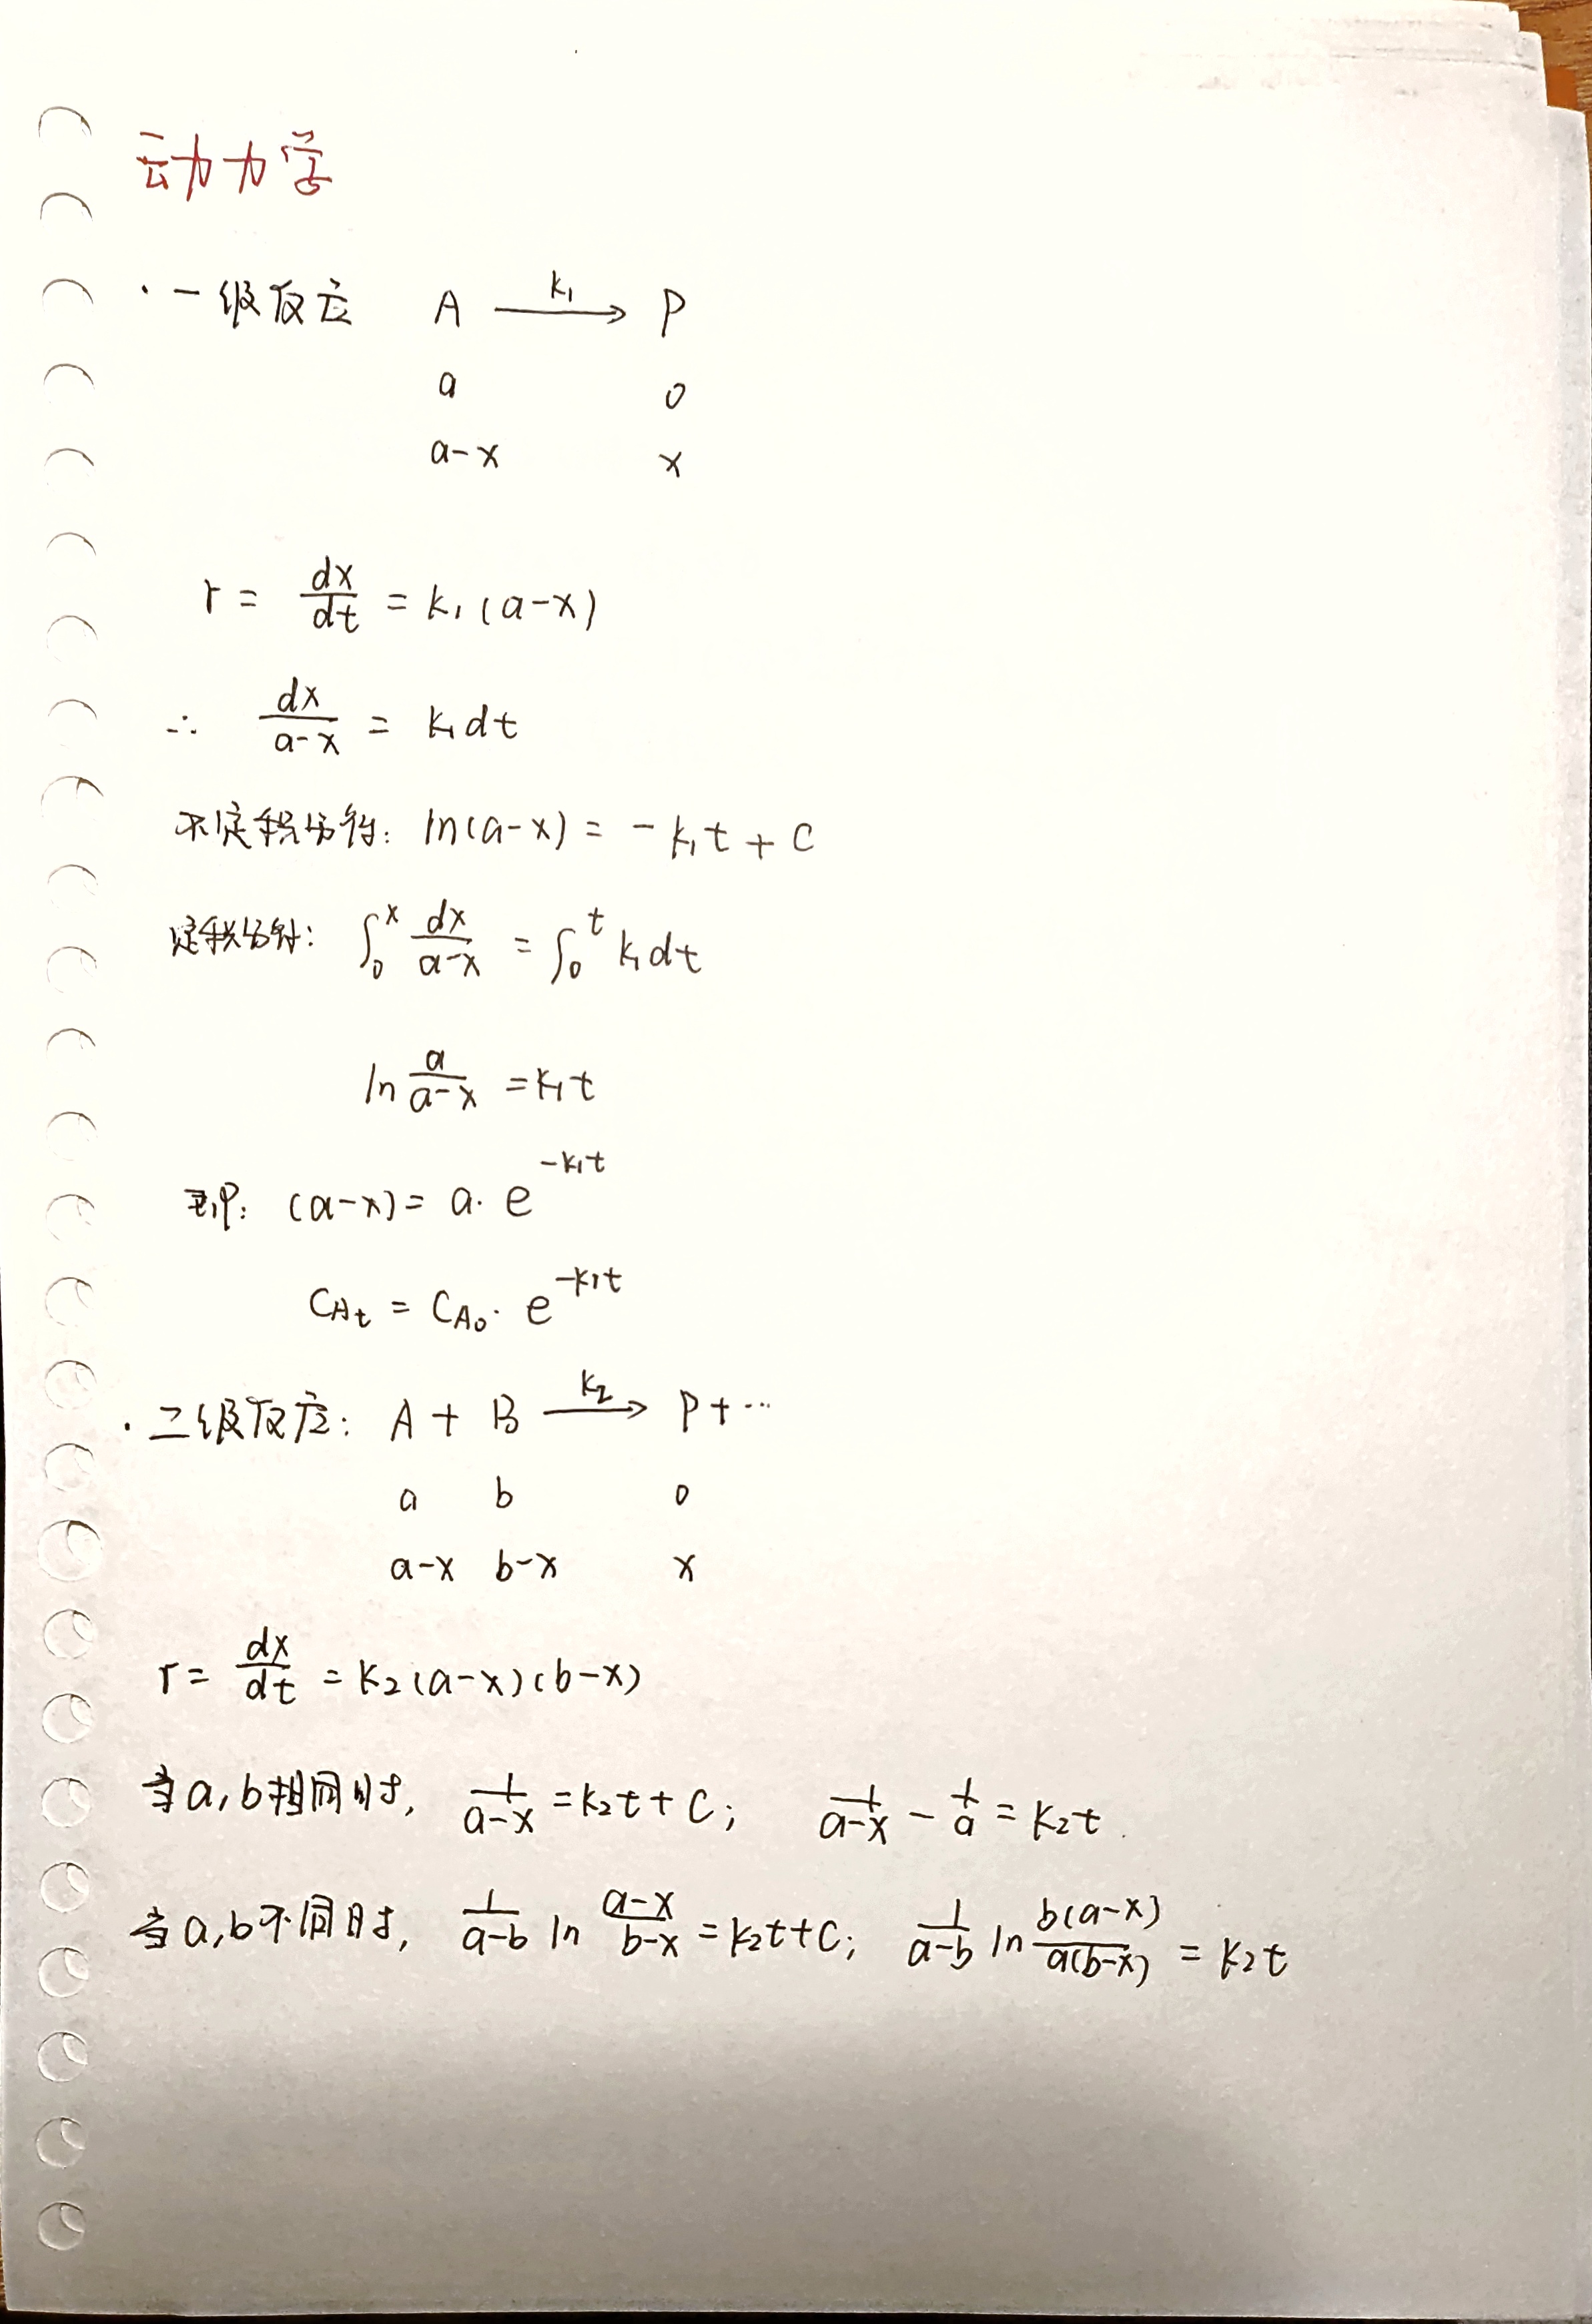 动力学
· 一级反应 A —k₁→ P
a 0
a-x x
r = dx/dt = k₁(a-x)
∴ dx/(a-x) = k₁dt
不定积分得: ln(a-x) = -k₁t + C
定积分针: ∫₀ˣ dx/(a-x) = ∫₀ᵗ k₁dt
ln a/(a-x) = k₁t
即: (a-x) = a· e^(-k₁t)
C_At = C_A₀· e^(-k₁t)
· 二级反应: A + B —k₂→ P + ···
a b 0
a-x b-x x
r = dx/dt = k₂(a-x)(b-x)
当a,b相同时, 1/(a-x) = k₂t + C; 1/(a-x) - 1/a = k₂t.
当a,b不同时, 1/(a-b) ln (a-x)/(b-x) = k₂t+C; 1/(a-b) ln b(a-x)/a(b-x) = k₂t